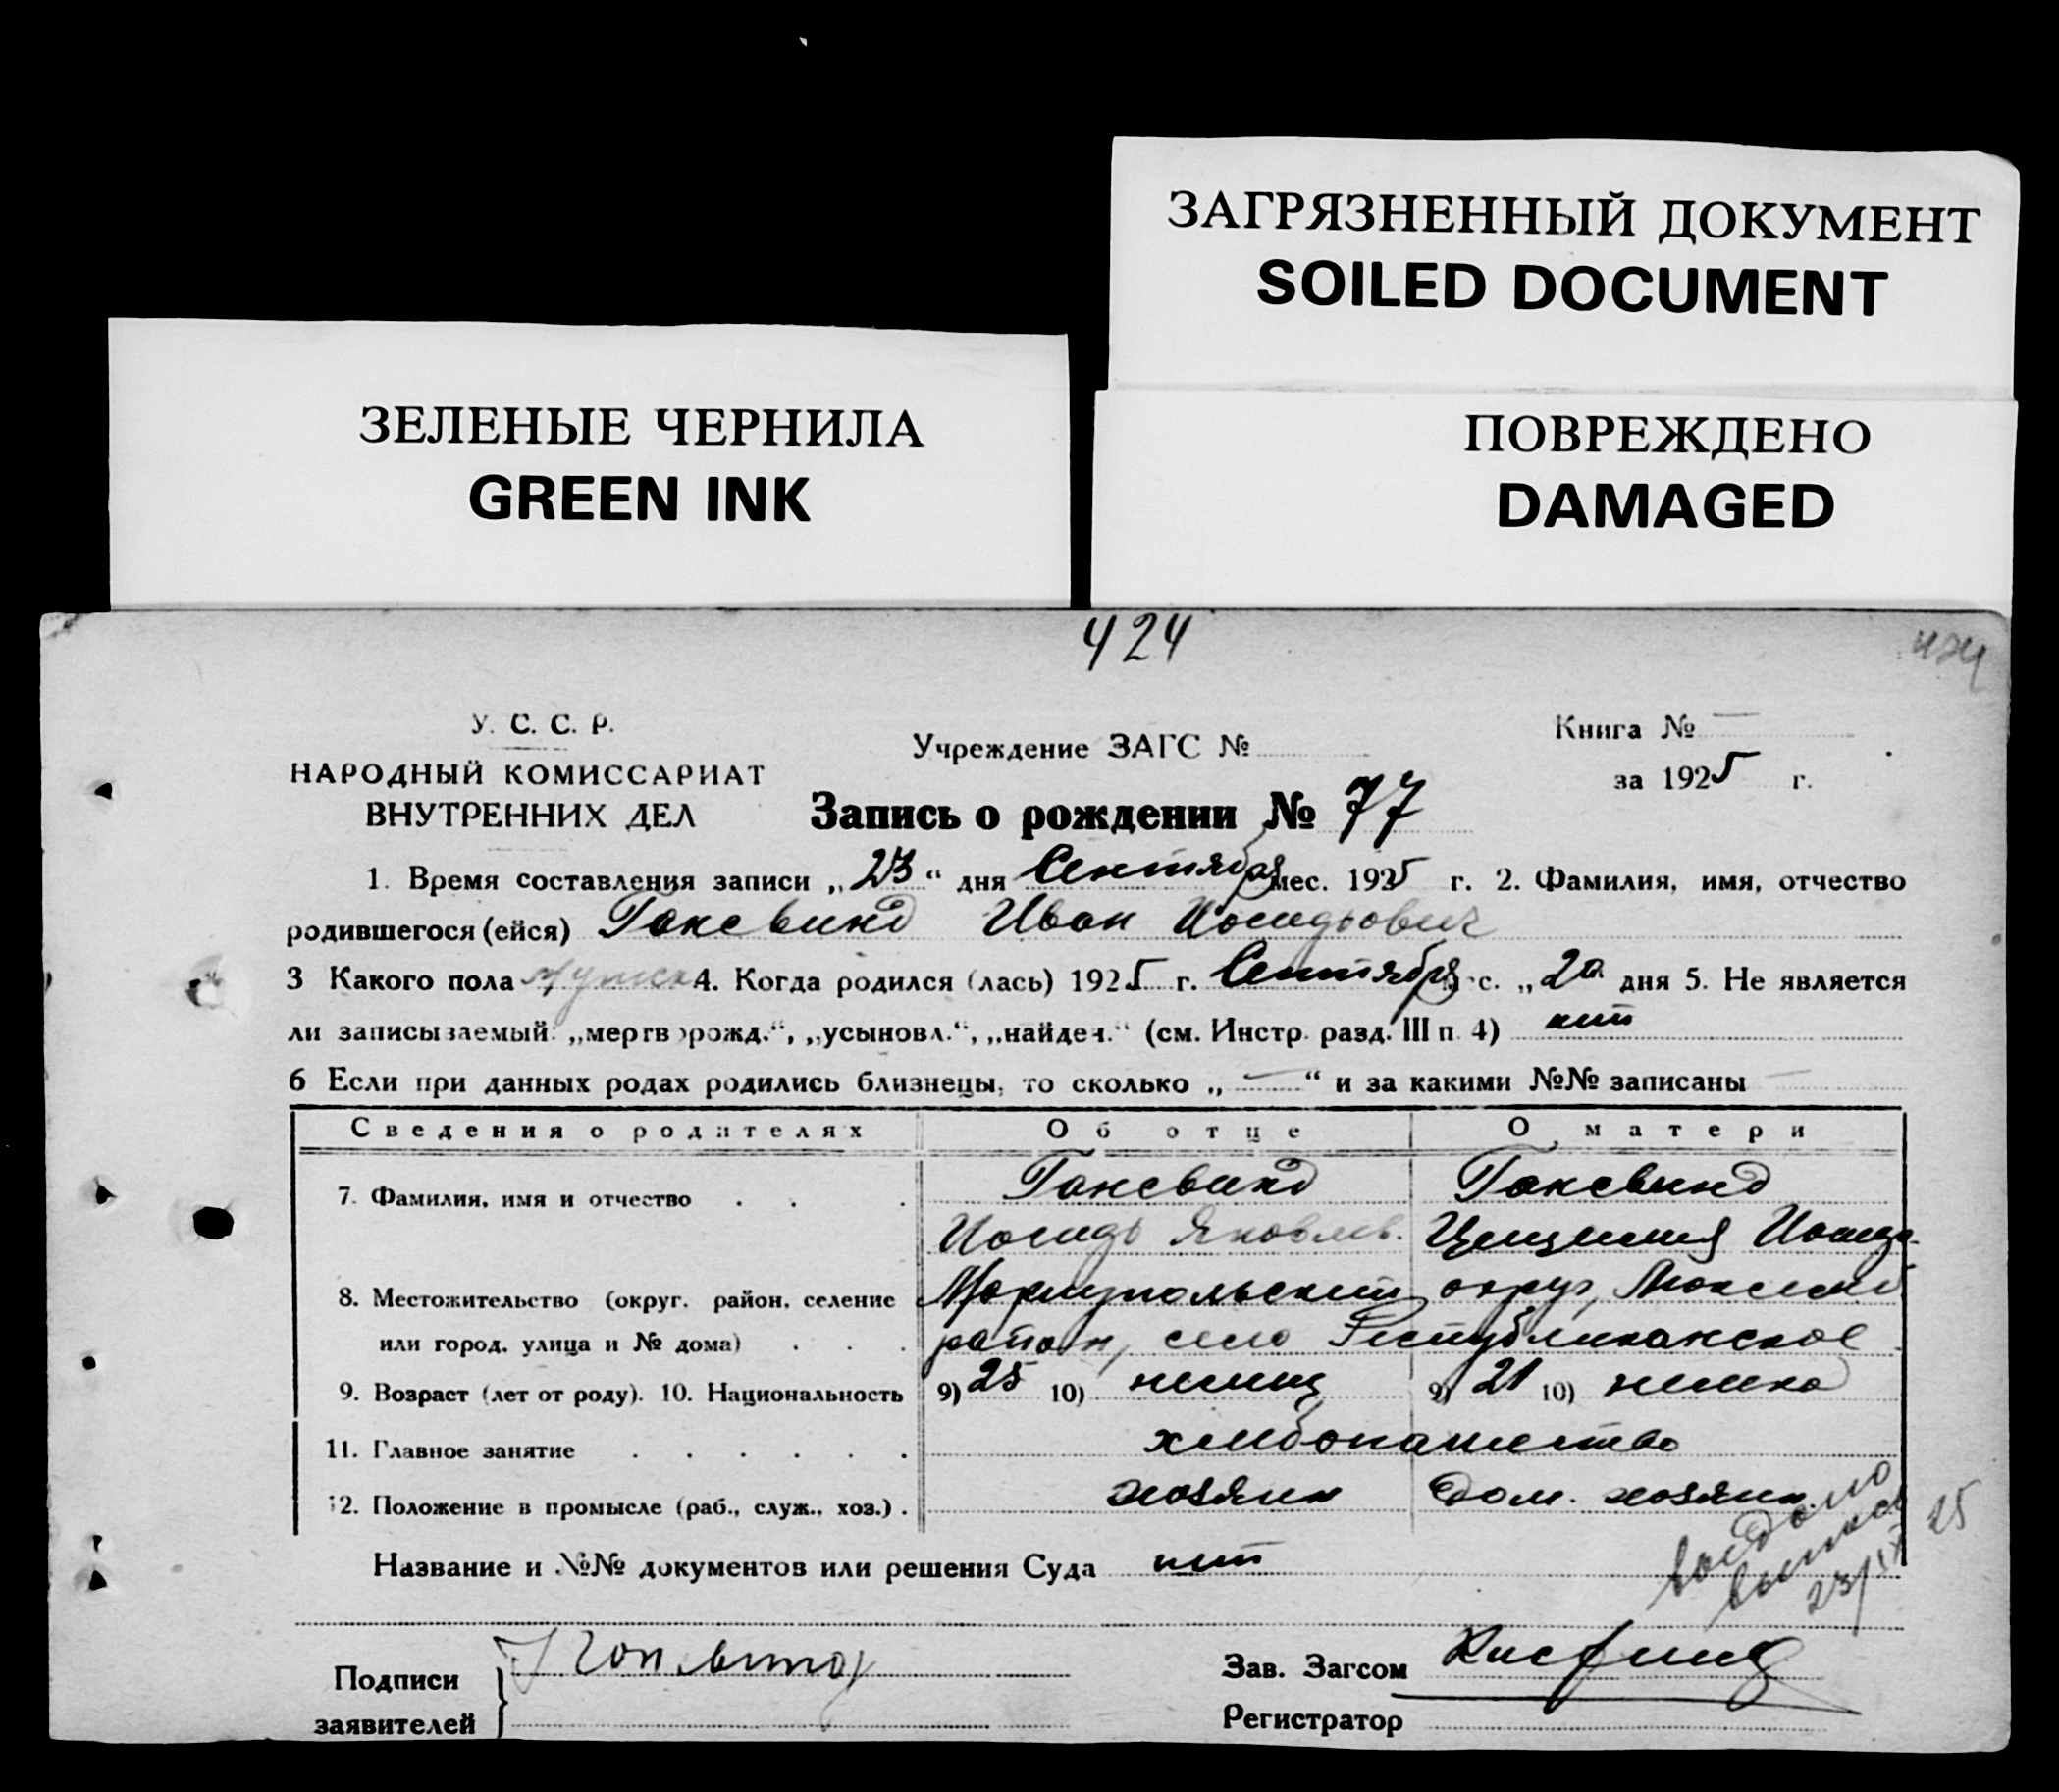 ЗАГРЯЗНЕННЫЙ ДОКУМЕНТ
SOILED DOCUMENT
ЗЕЛЕНЫЕ ЧЕРНИЛА
GREEN INK
ПОВРЕЖДЕНО
DAMAGED
424
424
У. С. С. Р.
НАРОДНЫЙ КОМИССАРИАТ
ВНУТРЕННИХ ДЕЛ
Учреждение ЗАГС №
Книга № —
за 1925 г.
Запись о рождении № 77
1. Время составления записи „23“ дня Сентября мес. 1925 г. 2. Фамилия, имя, отчество
родившегося (ейся) Гансвинд Иван Иосифович
3 Какого пола мужск 4. Когда родился (лась) 1925 г. Сентября с. „20 дня 5. Не является
ли записываемый: „мертворожд.“, „усыновл.“, „найден.“ (см. Инстр. разд. III п. 4) нет
6 Если при данных родах родились близнецы, то сколько „—“ и за какими №№ записаны —
Сведения о родителях Об отце О матери
7. Фамилия, имя и отчество . . . Гансвинд Гансвинд
Иосиф Яковлев. Цецилия Иосиф.
8. Местожительство (округ, район, селение Мариупольский округ,
или город, улица и № дома) . . . район, село Республиканское
9. Возраст (лет от роду). 10. Национальность 9) 25 10) немец 9) 21 10) немка
11. Главное занятие . . . . . . хлебопашество
12. Положение в промысле (раб., служ., хоз.) . хозяин дом. хозяин.
Название и №№ документов или решения Суда нет
выдано
выпись
23/IX 25
Подписи
заявителей
Зав. Загсом
Регистратор